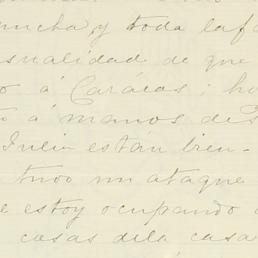 mucha, y toda la fa
sualidad de que
o á Carácas; ho
ó á manos de
Julia están bien
tuvo un ataque
e estoy ocupando
casas de la casa